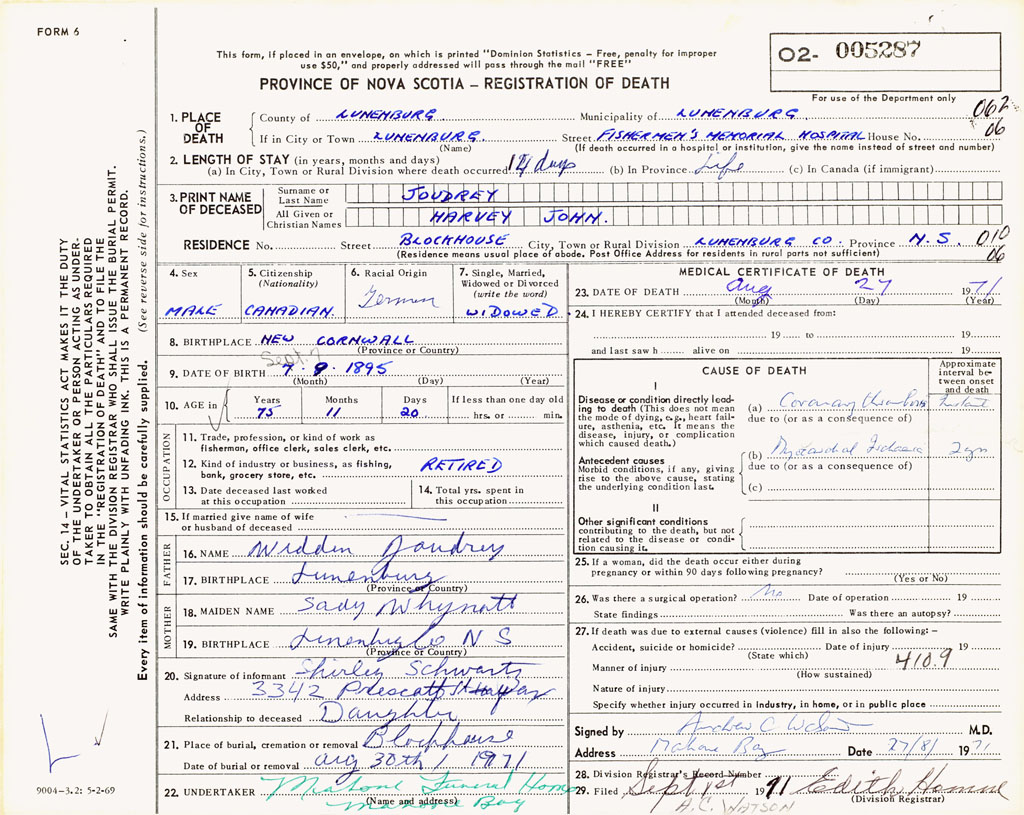 FORM 6
This form, if placed in an envelope, on which is printed "Dominion Statistics – Free, penalty for improper
use $50," and properly addressed will pass through the mail "FREE"
PROVINCE OF NOVA SCOTIA – REGISTRATION OF DEATH
O2- 005287
For use of the Department only
062
06
1. PLACE OF DEATH County of LUNENBURG Municipality of LUNENBURG
If in City or Town LUNENBURG Street FISHERMEN'S MEMORIAL HOSPITAL House No.
(Name) (If death occurred in a hospital or institution, give the name instead of street and number)
2. LENGTH OF STAY (in years, months and days)
(a) In City, Town or Rural Division where death occurred 14 days (b) In Province Life (c) In Canada (if immigrant)
3. PRINT NAME OF DECEASED Surname or Last Name JOUDREY
All Given or Christian Names HARVEY JOHN.
RESIDENCE No. Street BLOCKHOUSE City, Town or Rural Division LUNENBURG CO. Province N.S. 010
06
(Residence means usual place of abode. Post Office Address for residents in rural parts not sufficient)
4. Sex MALE
5. Citizenship (Nationality) CANADIAN.
6. Racial Origin German
7. Single, Married, Widowed or Divorced (write the word) WIDOWED.
8. BIRTHPLACE NEW CORNWALL
(Province or Country)
Sept. 7
9. DATE OF BIRTH 7 9 1895
(Month) (Day) (Year)
10. AGE in Years 75 Months 11 Days 20 If less than one day old hrs. or min.
OCCUPATION
11. Trade, profession, or kind of work as
fisherman, office clerk, sales clerk, etc.
12. Kind of industry or business, as fishing,
bank, grocery store, etc. RETIRED
13. Date deceased last worked
at this occupation
14. Total yrs. spent in
this occupation
15. If married give name of wife
or husband of deceased
FATHER
16. NAME Joudrey
17. BIRTHPLACE Lunenburg
(Province or Country)
MOTHER
18. MAIDEN NAME Sady Whynott
19. BIRTHPLACE Lunenburg Co N S
(Province or Country)
20. Signature of informant Shirley Schwartz
Address 3342 Prescott
Relationship to deceased Daughter
21. Place of burial, cremation or removal Blockhouse
Date of burial or removal Aug 30th 1971
22. UNDERTAKER Mahone Funeral Home
(Name and address) Mahone Bay
MEDICAL CERTIFICATE OF DEATH
23. DATE OF DEATH Aug 27 1971
(Month) (Day) (Year)
24. I HEREBY CERTIFY that I attended deceased from:
19 to 19
and last saw h alive on 19
CAUSE OF DEATH
Approximate interval between onset and death
I
Disease or condition directly lead-
ing to death (This does not mean
the mode of dying, e.g., heart fail-
ure, asthenia, etc. It means the
disease, injury, or complication
which caused death.)
(a) Coronary Thrombosis Instant
due to (or as a consequence of)
Antecedent causes
Morbid conditions, if any, giving
rise to the above cause, stating
the underlying condition last.
(b) Myocardial Ischaemia 2 yrs
due to (or as a consequence of)
(c)
II
Other significant conditions
contributing to the death, but not
related to the disease or condi-
tion causing it.
25. If a woman, did the death occur either during
pregnancy or within 90 days following pregnancy?
(Yes or No)
26. Was there a surgical operation? No Date of operation 19
State findings Was there an autopsy?
27. If death was due to external causes (violence) fill in also the following: –
Accident, suicide or homicide? Date of injury 19
(State which) 410.9
Manner of injury
(How sustained)
Nature of injury
Specify whether injury occurred in Industry, in home, or in public place
Signed by Andrew C Watson M.D.
Address Mahone Bay Date 27/8/ 1971
28. Division Registrar's Record Number
29. Filed Sept 1st 1971 Edith
(Division Registrar)
A.C. WATSON
SEC. 14 – VITAL STATISTICS ACT MAKES IT THE DUTY
OF THE UNDERTAKER OR PERSON ACTING AS UNDER-
TAKER TO OBTAIN ALL THE PARTICULARS REQUIRED
IN THE "REGISTRATION OF DEATH" AND TO FILE THE
SAME WITH THE DIVISION REGISTRAR WHO SHALL ISSUE THE BURIAL PERMIT.
WRITE PLAINLY WITH UNFADING INK. THIS IS A PERMANENT RECORD.
Every item of information should be carefully supplied. (See reverse side for instructions.)
9004-3.2: 5-2-69